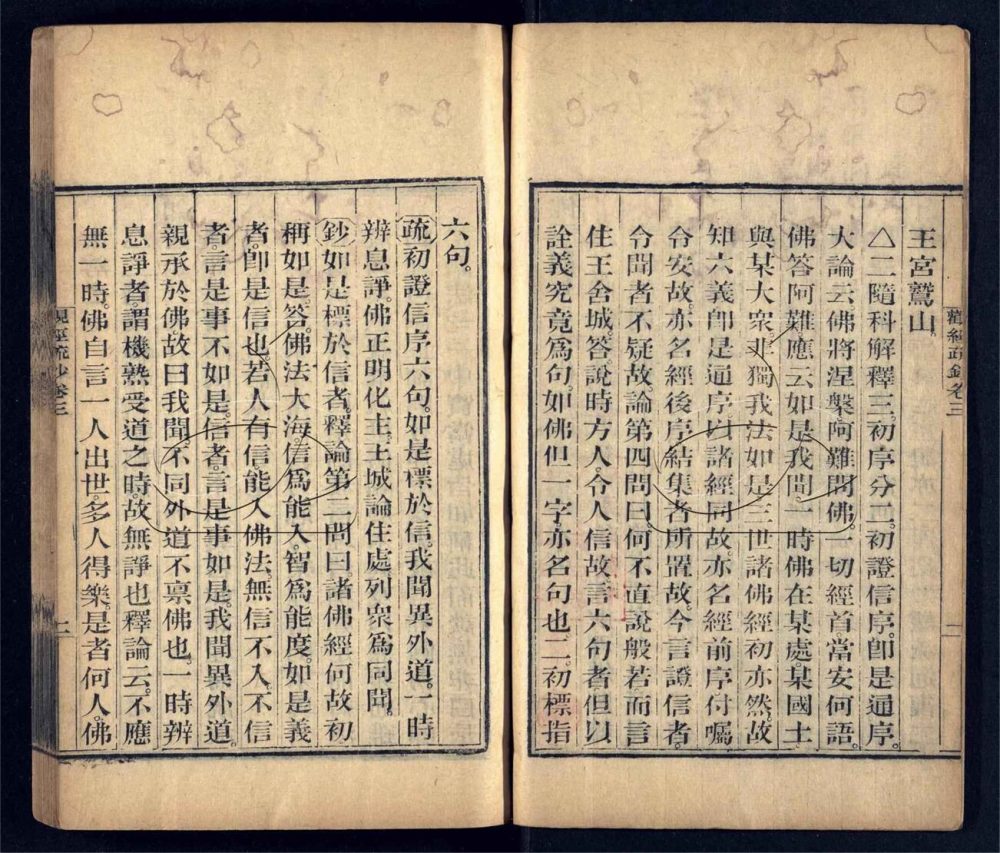 王宮鷲山
△二隨科解釋三初序分二初證信序。卽是通序。
大論云佛將涅槃阿難問佛。一切經首當安何語。
佛答阿難應云如是我聞一時佛在某處。某國土
與某大衆。非獨我法如是三世諸佛經初亦然。故
知六義卽是通序。以諸經同故。亦名經前序付囑
令安故。亦名經後序結集者所置故。今言證信者。
令聞者不疑故論第四問曰。何不直說般若而言
住王舍城答說時方人。令人信故言六句者但以
詮義究竟爲句。如佛但一字亦名句也二。初標指
觀經疏鈔卷三
二
六句。
疏初證信序六句。如是標於信。我聞異外道。一時
辨息諍。佛正明化主。王城論住處列衆爲同聞。
鈔如是標於信者。釋論第二問曰諸佛經何故初
稱如是。答。佛法大海。信爲能入。智爲能度。如是義
者。卽是信也。若人有信。能入佛法。無信不入。不信
者。言是事不如是。信者。言是事如是。我聞異外道
親承於佛。故曰我聞。不同外道不禀佛也。一時辨
息諍者。謂機熟受道之時。故無諍也釋論云。不應
無一時。佛自言一人出世。多人得樂。是者何人。佛
觀經疏鈔卷三